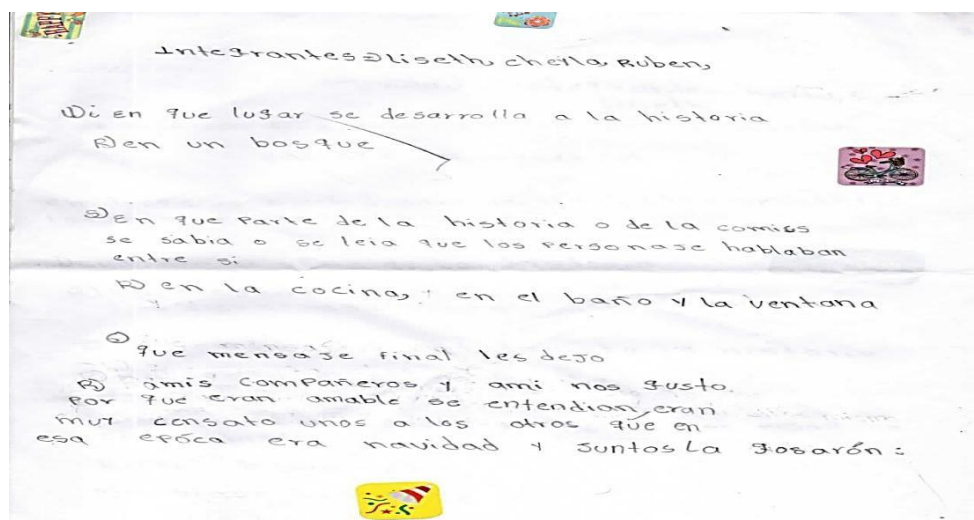 HAPPY
Integrantes: Liseth, cheila, Ruben,
1) Di en que lugar se desarrolla a la historia
R) en un bosque
2) En que parte de la historia o de la comics
se sabia o se leia que los personase hablaban
entre si
R) en la cocina, y en el baño y la ventana
que mensaje final les dejo
R) amis compañeros y ami nos gusto.
por que eran amable se entendian, eran
muy censato unos a los otros que en
esa epóca era navidad y juntos La gosarón: